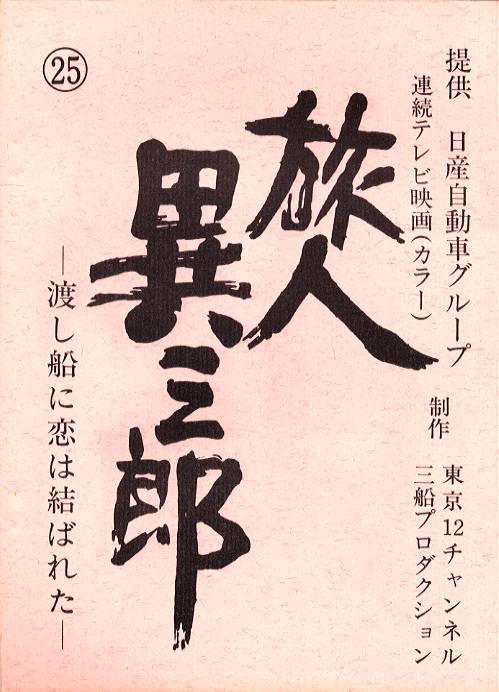 提供　日産自動車グループ
連続テレビ映画(カラー)
制作
東京12チャンネル
三船プロダクション
旅人
異三郎
㉕
―渡し船に恋は結ばれた―